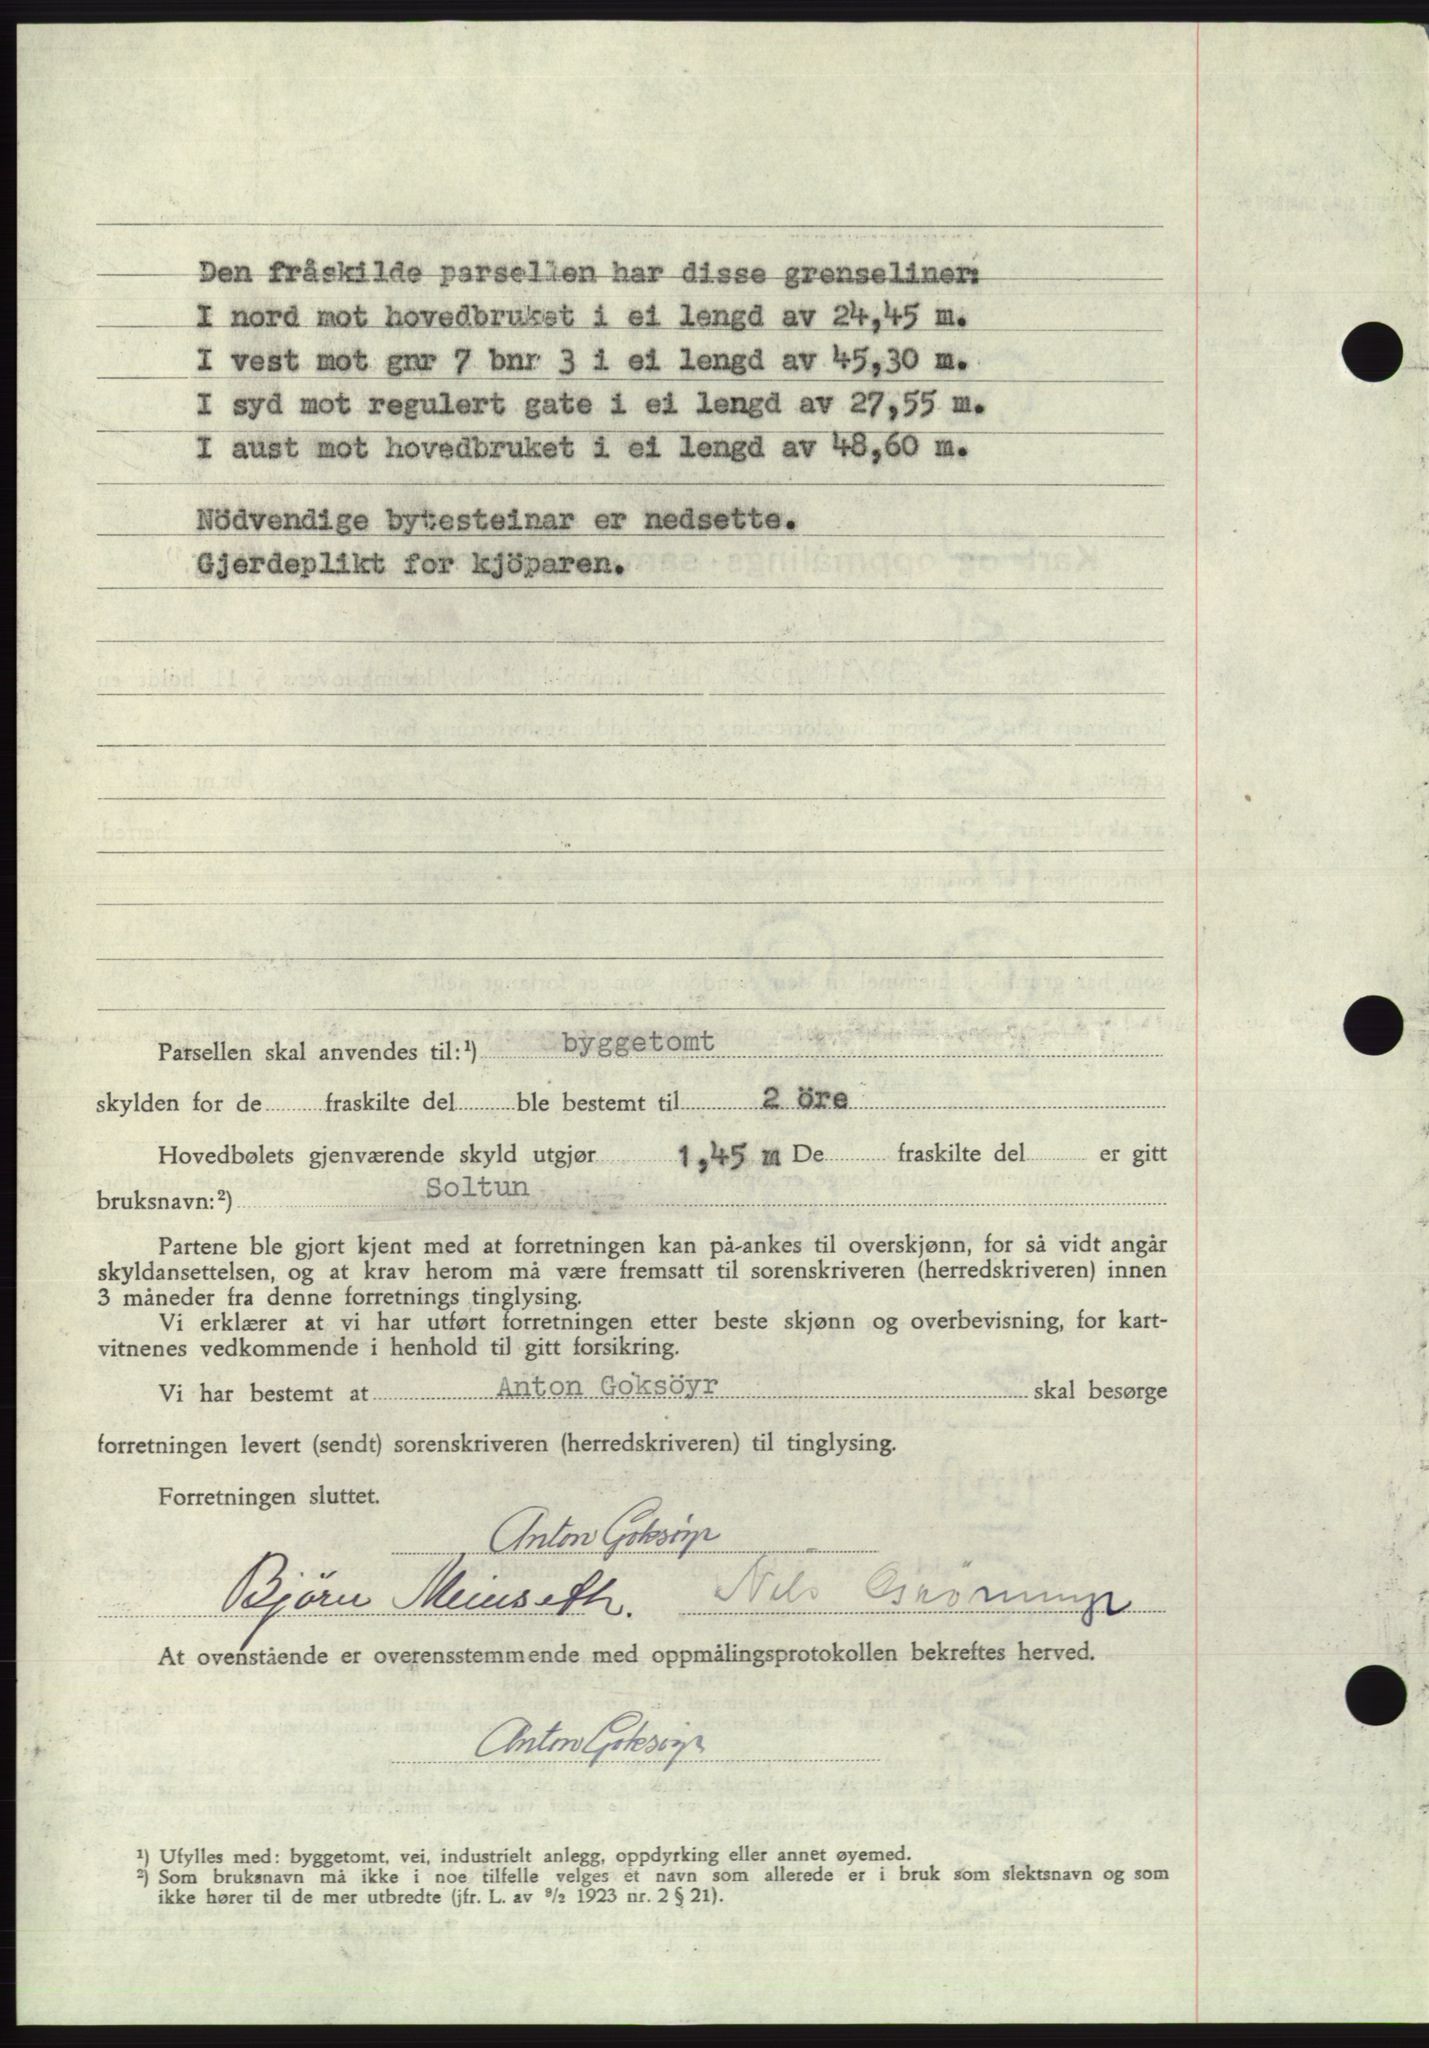 Den fråskilde parsellen har disse grenseliner:
I nord mot hovedbruket i ei lengd av 24,45 m.
I vest mot gnr 7 bnr 3 i ei lengd av 45,30 m.
I syd mot regulert gate i ei lengd av 27,55 m.
I aust mot hovedbruket i ei lengd av 48,60 m.
Nödvendige bytesteinar er nedsette.
Gjerdeplikt for kjöparen.
Parsellen skal anvendes til:¹) byggetomt
skylden for de fraskilte del ble bestemt til 2 öre
Hovedbølets gjenværende skyld utgjør 1,45 m De fraskilte del er gitt
bruksnavn:²) Soltun
Partene ble gjort kjent med at forretningen kan på-ankes til overskjønn, for så vidt angår
skyldansettelsen, og at krav herom må være fremsatt til sorenskriveren (herredskriveren) innen
3 måneder fra denne forretnings tinglysing.
Vi erklærer at vi har utført forretningen etter beste skjønn og overbevisning, for kart-
vitnenes vedkommende i henhold til gitt forsikring.
Vi har bestemt at Anton Goksöyr skal besørge
forretningen levert (sendt) sorenskriveren (herredskriveren) til tinglysing.
Forretningen sluttet.
Anton Goksøyr
Bjørn Meinseth. Nils
At ovenstående er overensstemmende med oppmålingsprotokollen bekreftes herved.
Anton Goksøyr
¹) Ufylles med: byggetomt, vei, industrielt anlegg, oppdyrking eller annet øyemed.
²) Som bruksnavn må ikke i noe tilfelle velges et navn som allerede er i bruk som slektsnavn og som
ikke hører til de mer utbredte (jfr. L. av 9/2 1923 nr. 2 § 21).